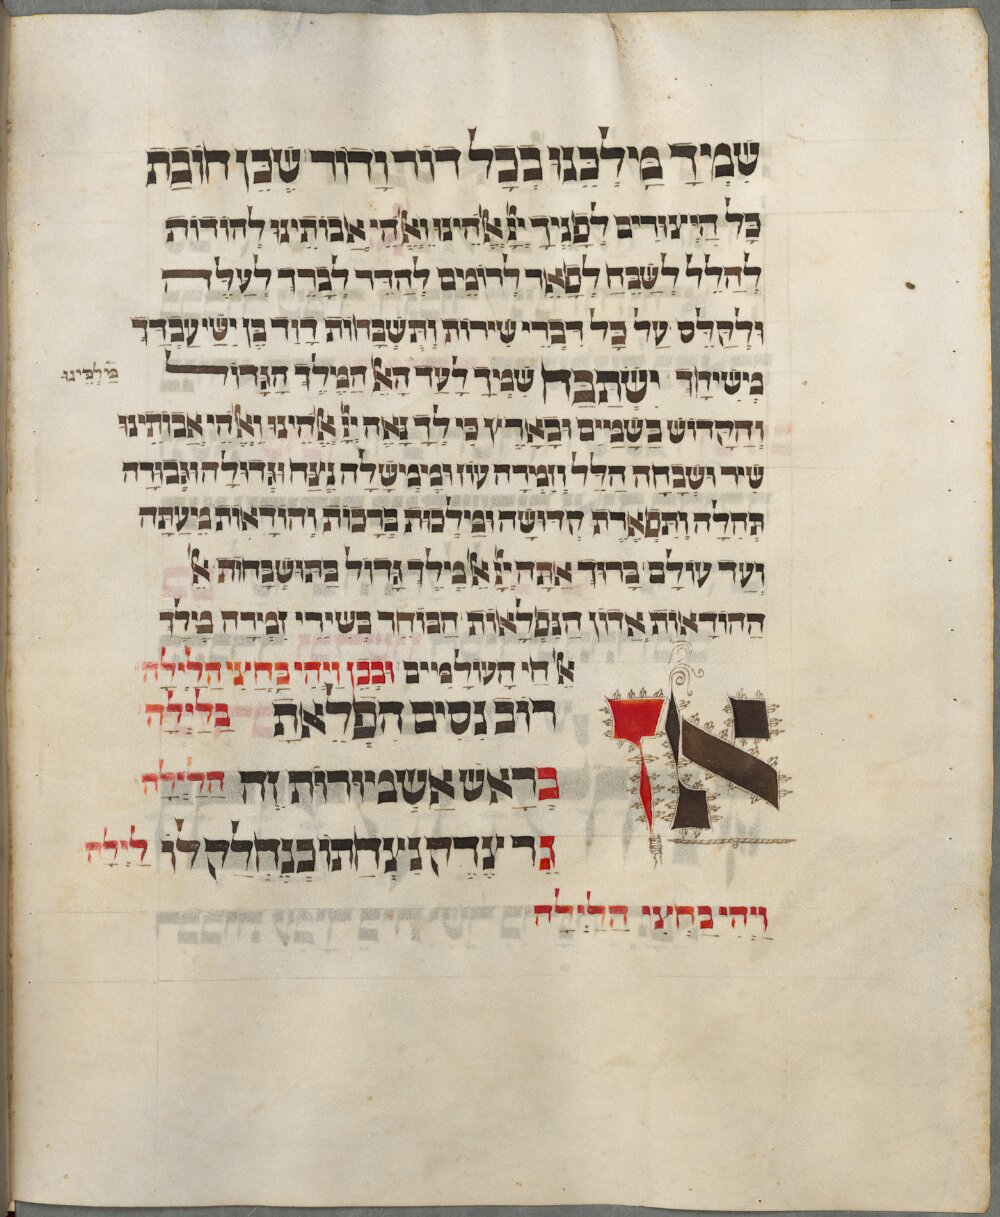 שִׁמְךָ מַלְכֵּנוּ בְּכָל דּוֹר וָדוֹר שֶׁכֵּן חוֹבַת
כָּל הַיְצוּרִים לְפָנֶיךָ יְיָ אֱלֹהֵינוּ וֵאלֹהֵי אֲבוֹתֵינוּ לְהוֹדוֹת
לְהַלֵּל לְשַׁבֵּחַ לְפָאֵר לְרוֹמֵם לְהַדֵּר לְבָרֵךְ לְעַלֵּה
וּלְקַלֵּס עַל כָּל דִּבְרֵי שִׁירוֹת וְתִשְׁבָּחוֹת דָּוִד בֶּן יִשַׁי עַבְדְּךָ
מְשִׁיחֶךָ יִשְׁתַּבַּח שִׁמְךָ לָעַד הָאֵל הַמֶּלֶךְ הַגָּדוֹל
מַלְכֵּינוּ
וְהַקָּדוֹשׁ בַּשָּׁמַיִם וּבָאָרֶץ כִּי לְךָ נָאֶה יְיָ אֱלֹהֵינוּ וֵאלֹהֵי אֲבוֹתֵינוּ
שִׁיר וּשְׁבָחָה הַלֵּל וְזִמְרָה עוֹז וּמֶמְשָׁלָה נֶצַח גְּדוּלָּה וּגְבוּרָה
תְּהִלָּה וְתִפְאֶרֶת קְדוּשָׁה וּמַלְכוּת בְּרָכוֹת וְהוֹדָאוֹת מֵעַתָּה
וְעַד עוֹלָם בָּרוּךְ אַתָּה יְיָ אֵל מֶלֶךְ גָּדוֹל בַּתּוּשְׁבָּחוֹת אֵל
הַהוֹדָאוֹת אֲדוֹן הַנִּפְלָאוֹת הַבּוֹחֵר בְּשִׁירֵי זִמְרָה מֶלֶךְ
אֵל חֵי הָעוֹלָמִים וּבְכֵן וַיְהִי בַּחֲצִי הַלַּיְלָה
אָז רוֹב נִסִּים הִפְלֵאתָ בַּלַּיְלָה
בְּרֹאשׁ אַשְׁמוּרוֹת זֶה הַלַּיְלָה
גֵּר צֶדֶק נִצַּחְתּוֹ כְּנֶחֱלַק לוֹ לַיְלָה
וַיְהִי בַּחֲצִי הַלַּיְלָה